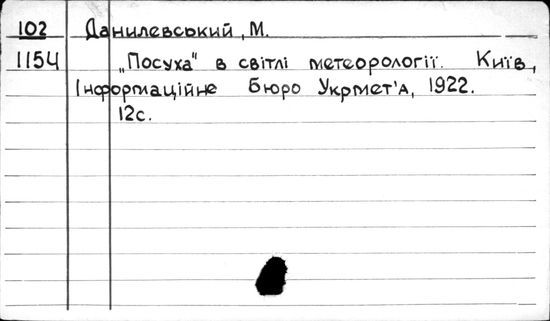 102 Данилевський, М.
1154 „Посуха" в світлі метеорології. Київ,
Інформаційне бюро Укрмет'а, 1922.
12с.